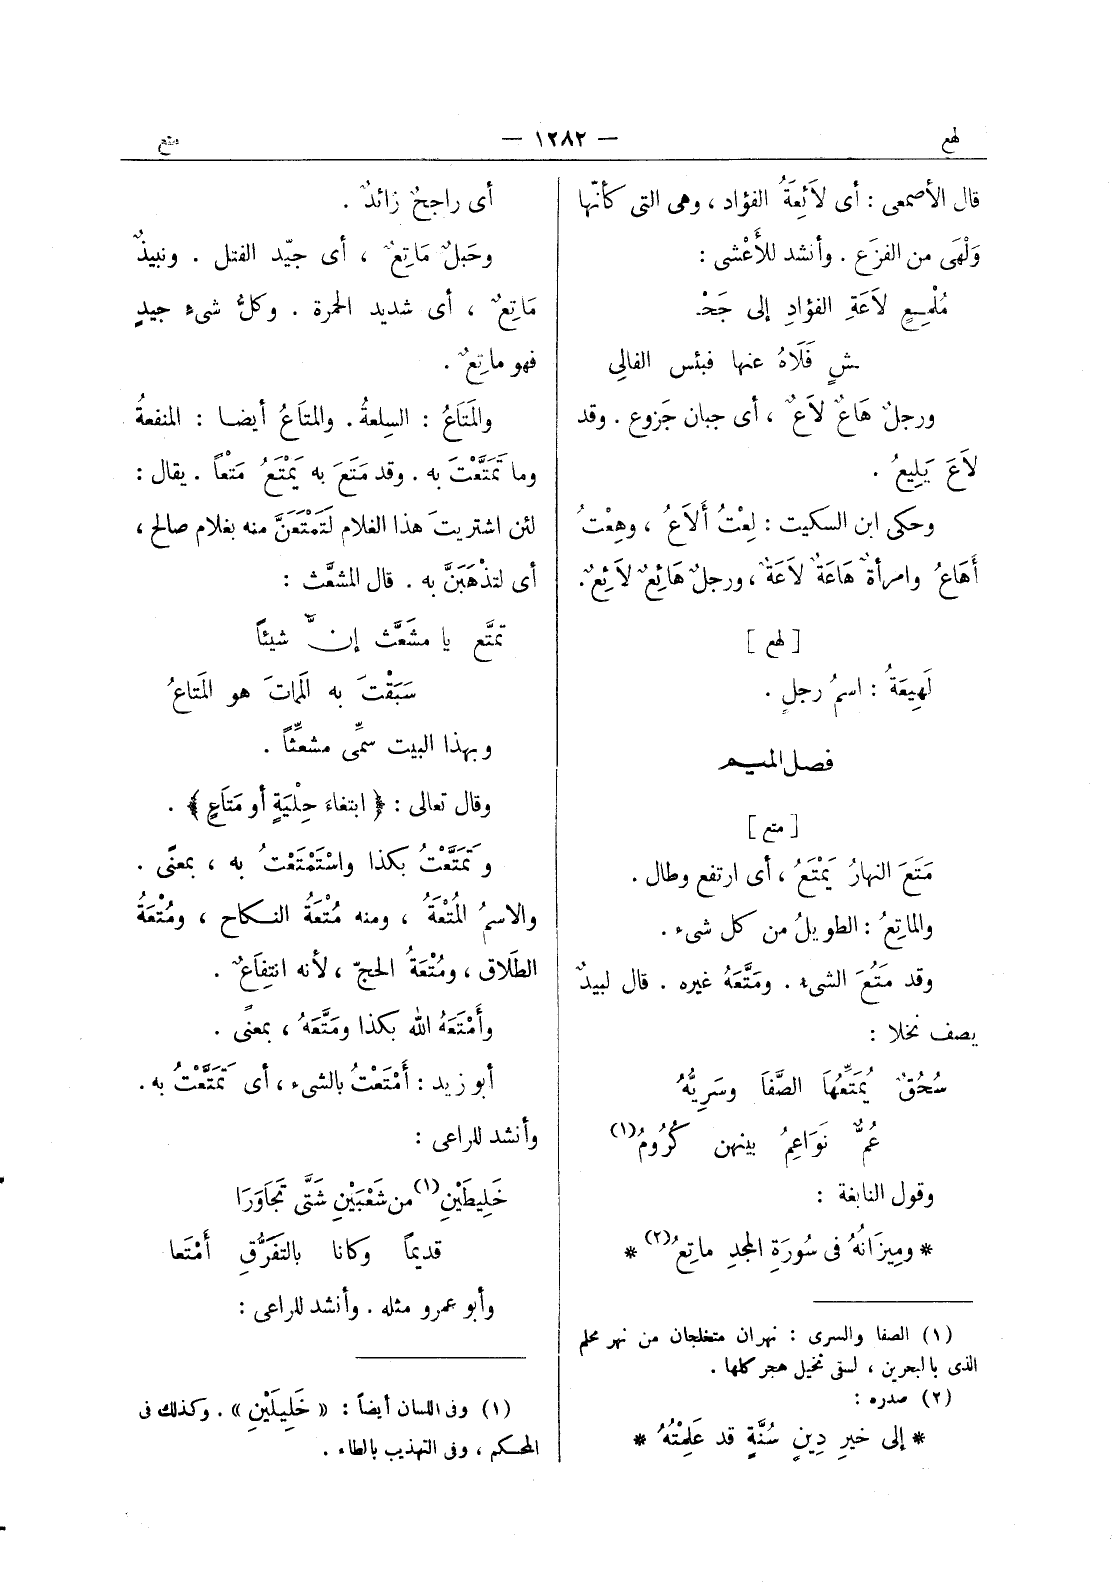 لهع
— ١٢٨٢ —
متع
قال الأصمعى : أى لاَئِعَةُ الفؤاد ، وهى التى كأنّها
وَلْهَى من الفزَع . وأنشد للأَعْشى :
مُلْمِعٍ لاَعَةِ الفؤادِ إلى جَحْـ
ـشٍ فَلَاهُ عنها فبئس الفالِى
ورجلٌ هَاعٌ لاَعٌ ، أى جبان جَزوع . وقد
لاَعَ يَلِيعُ .
وحكى ابن السكيت : لِعْتُ أَلاَعُ ، وهِعْتُ
أَهَاعُ وامرأةٌ هَاعَةٌ لاَعَةٌ ، ورجلٌ هَائِعٌ لاَئِعٌ.
[ لهع ]
لَهِيعَةُ : اسمُ رجلٍ .
فصل الميم
[ متع ]
مَتَعَ النهارُ يَمْتَعُ ، أى ارتفع وطال .
والماتِعُ : الطويلُ من كل شىء .
وقد مَتُعَ الشىء . ومَتَّعَهُ غيره . قال لبيدٌ
يصف نخلا :
سُحُقٌ يُمَتِّعُهَا الصَّفَا وسَرِيُّهُ
عُمٌّ نَوَاعِمُ بينهن كُرُومُ(١)
وقول النابغة :
* ومِيزَانُهُ فى سُورَةِ المجدِ ماتِعُ(٢) *
(١) الصفا والسرى : نهران متخلجان من نهر محلم
الذى بالبحرين ، لسقى نخيل هجر كلها .
(٢) صدره :
* إلى خيرِ دِينٍ سُنَّةٍ قد عَلِمْتُهُ *
أى راجحٌ زائدٌ .
وحَبلٌ مَاتِعٌ ، أى جيّد الفتل . ونبيذٌ
مَاتِعٌ ، أى شديد الحمرة . وكلُّ شىء جيدٍ
فهو ماتِعٌ .
والمَتَاعُ : السِلعةُ . والمتاعُ أيضا : المنفعةُ
وما تَمَتَّعْتَ به . وقد مَتَعَ به يَمْتَعُ مَتْعاً . يقال :
لئن اشتريتَ هذا الغلام لَتَمْتَعَنَّ منه بغلام صالح ،
أى لتذْهَبَنَّ به . قال المشعَّث :
تمتَّع يا مشَعَّث إن شيئاً
سَبَقْتَ به المَماتَ هو المَتاعُ
وبهذا البيت سمِّى مشعِّثاً .
وقال تعالى : ﴿ ابتغاءَ حِلْيَةٍ أو مَتَاعٍ ﴾ .
وتَمَتَّعْتُ بكذا واسْتَمْتَعْتُ به ، بمعنًى .
والاسمُ المُتْعَةُ ، ومنه مُتْعَةُ النكاح ، ومُتْعَةُ
الطَلاق ، ومُتْعَةُ الحجّ ، لأنه انتِفَاعٌ .
وأَمْتَعَهُ الله بكذا ومَتَّعَهُ ، بمعنًى .
أبو زيد : أَمْتَعْتُ بالشىء ، أى تَمَتَّعْتُ به .
وأنشد للراعى :
خَلِيطَيْنِ(١) من شَعْبَيْنِ شَتَّى تَجَاوَرَا
قديماً وكانا بالتفَرُّقِ أَمْتَعا
وأبو عمرو مثله . وأنشد للراعى :
(١) وفى اللسان أيضاً : « خَلِيلَيْنِ » . وكذلك فى
المحكم ، وفى التهذيب بالطاء .